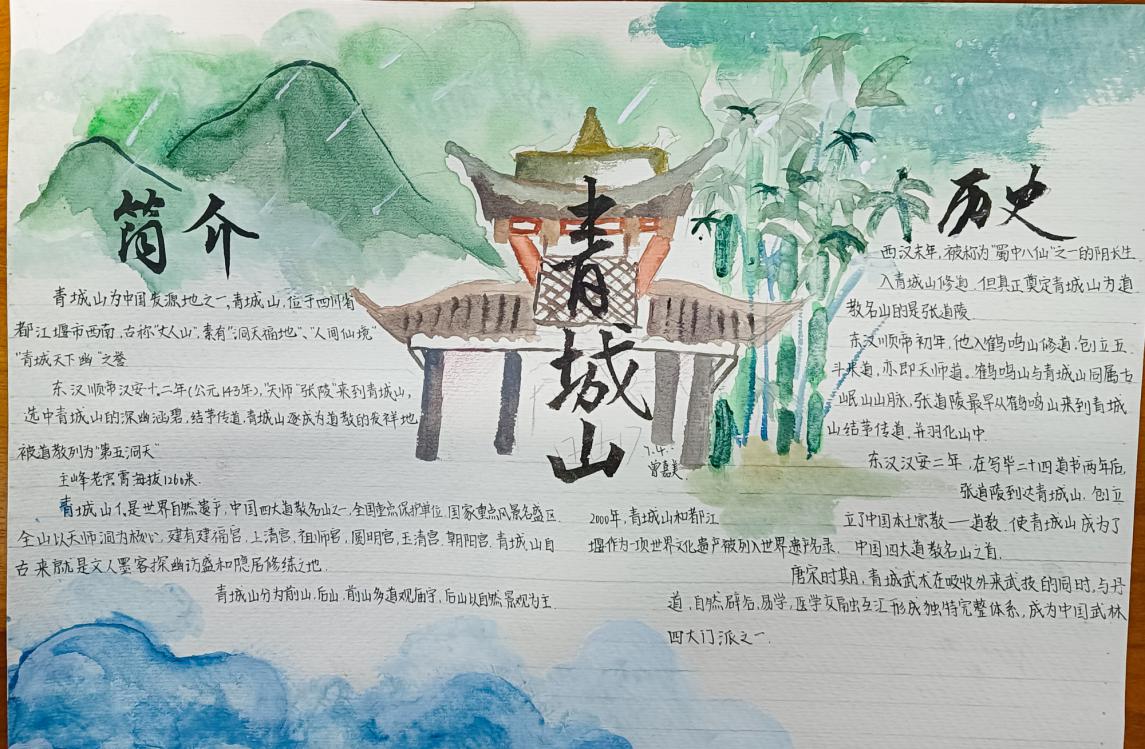 青城山
7.4.
曾嘉美
简介
青城山为中国发源地之一,青城山,位于四川省
都江堰市西南,古称"丈人山",素有"洞天福地"、"人间仙境"
"青城天下幽"之誉
东汉顺帝汉安十二年(公元143年),"天师"张陵"来到青城山,
选中青城山的深幽涵碧,结茅传道,青城山逐成为道教的发祥地,
被道教列为"第五洞天"
主峰老宵霄海拔1260米.
青城山不仅是世界自然遗产,中国四大道教名山之一,全国重点保护单位,国家重点风景名盛区.
全山以天师洞为核心,建有建福宫,上清宫,祖师宫,圆明宫,玉清宫,朝阳宫.青城山自
古来就是文人墨客探幽访盛和隐居修练之地.
青城山分为前山,后山.前山多道观庙宇,后山以自然景观为主.
历史
西汉末年,被称为"蜀中八仙"之一的阴长生
入青城山修道,但真正奠定青城山为道
教名山的是张道陵
东汉顺帝初年,他入鹤鸣山修道,创立五
斗米道,亦即天师道。鹤鸣山与青城山同属古
岷山山脉,张道陵最早从鹤鸣山来到青城
山结茅传道,并羽化山中.
东汉汉安二年,在写毕二十四道书两年后,
张道陵到达青城山,创立
立了中国本土宗教——道教,使青城山成为了
中国四大道教名山之首.
2000年,青城山和都江
堰作为一项世界文化遗产被列入世界遗产名录.
唐宋时期,青城武术在吸收外来武技的同时,与丹
道,自然辟谷,易学,医学交融虫互汇形成独特完整体系,成为中国武林
四大门派之一.